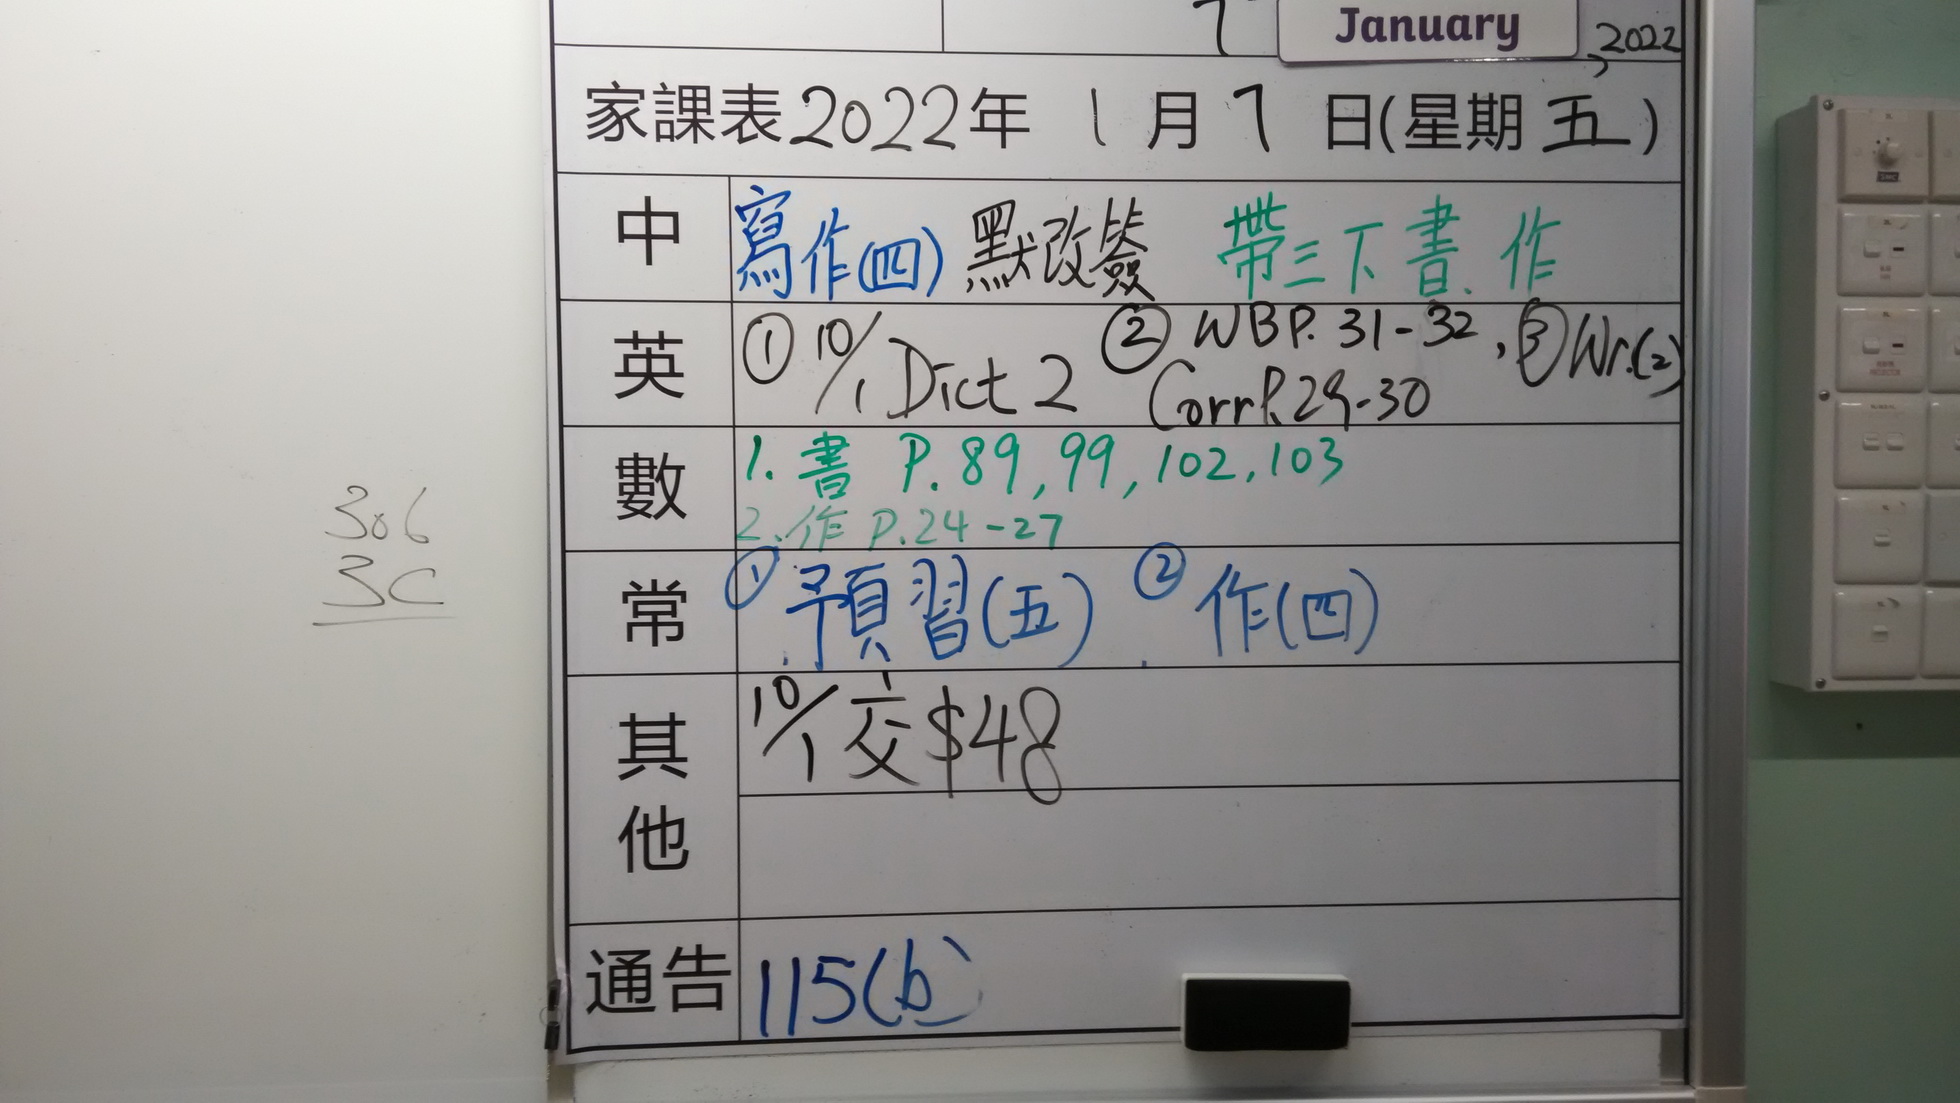 7 January, 2022
家課表2022年 1月 7日(星期五)
中 寫作(四) 默改簽 帶三下書、作
英 ① 10/1 Dict 2 ② WB P. 31-32, ③ Wr.(2)
Corr P. 29-30
數 1. 書 P. 89, 99, 102, 103
2. 作 P.24-27
306
3C
常 ① 預習(五) ② 作(四)
其他 10/1 交 $48
通告 115(b)